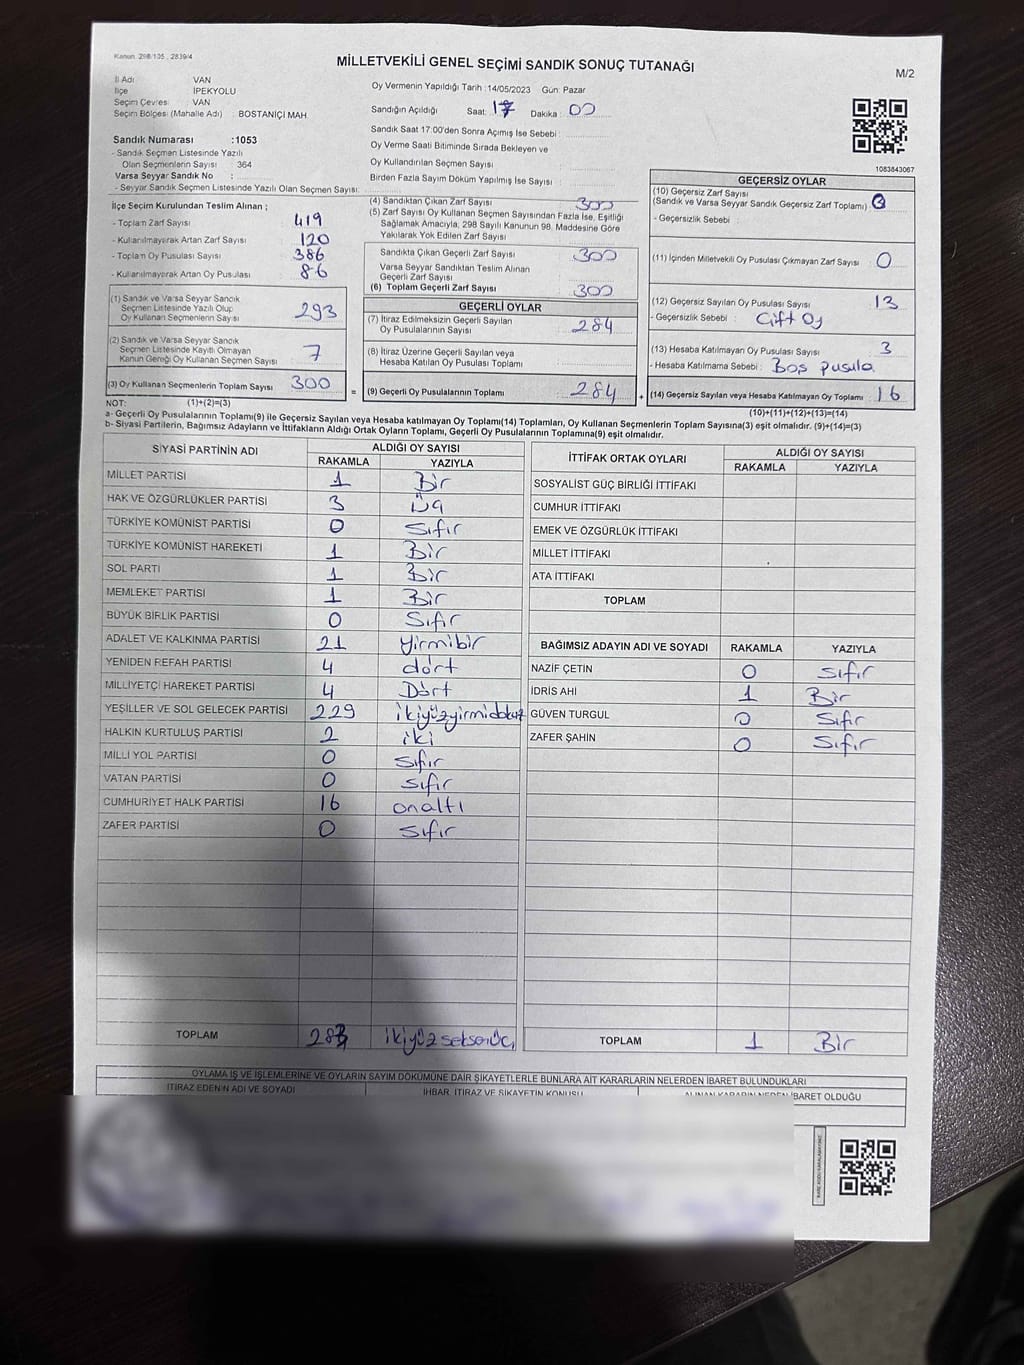 Kanun. 298/105 , 2839/4
MİLLETVEKİLİ GENEL SEÇİMİ SANDIK SONUÇ TUTANAĞI
M/2
İl Adı : VAN
İlçe : İPEKYOLU
Seçim Çevresi : VAN
Seçim Bölgesi (Mahalle Adı) : BOSTANİÇİ MAH
Oy Vermenin Yapıldığı Tarih :14/05/2023 Gün: Pazar
Sandığın Açıldığı Saat: 17 Dakika : 00
Sandık Saat 17:00'den Sonra Açımış İse Sebebi :
Oy Verme Saati Bitiminde Sırada Bekleyen ve
Oy Kullandırılan Seçmen Sayısı :
Birden Fazla Sayım Döküm Yapılmış İse Sayısı :
Sandık Numarası :1053
- Sandık Seçmen Listesinde Yazılı
Olan Seçmenlerin Sayısı : 364
Varsa Seyyar Sandık No :
- Seyyar Sandık Seçmen Listesinde Yazılı Olan Seçmen Sayısı:
1083843067
İlçe Seçim Kurulundan Teslim Alınan ;
- Toplam Zarf Sayısı : 419
- Kullanılmayarak Artan Zarf Sayısı : 120
- Toplam Oy Pusulası Sayısı : 386
- Kullanılmayarak Artan Oy Pusulası : 86
(1) Sandık ve Varsa Seyyar Sandık
Seçmen Listesinde Yazılı Olup
Oy Kullanan Seçmenlerin Sayısı : 293
(2) Sandık ve Varsa Seyyar Sandık
Seçmen Listesinde Kayıtlı Olmayan
Kanun Gereği Oy Kullanan Seçmen Sayısı : 7
(3) Oy Kullanan Seçmenlerin Toplam Sayısı : 300
(4) Sandıktan Çıkan Zarf Sayısı : 300
(5) Zarf Sayısı Oy Kullanan Seçmen Sayısından Fazla İse, Eşitliği
Sağlamak Amacıyla, 298 Sayılı Kanunun 98. Maddesine Göre
Yakılarak Yok Edilen Zarf Sayısı :
Sandıkta Çıkan Geçerli Zarf Sayısı : 300
Varsa Seyyar Sandıktan Teslim Alınan
Geçerli Zarf Sayısı :
(6) Toplam Geçerli Zarf Sayısı : 300
GEÇERLİ OYLAR
(7) İtiraz Edilmeksizin Geçerli Sayılan
Oy Pusulalarının Sayısı : 284
(8) İtiraz Üzerine Geçerli Sayılan veya
Hesaba Katılan Oy Pusulası Toplamı :
= (9) Geçerli Oy Pusulalarının Toplamı : 284
GEÇERSİZ OYLAR
(10) Geçersiz Zarf Sayısı
(Sandık ve Varsa Seyyar Sandık Geçersiz Zarf Toplamı) : 0
- Geçersizlik Sebebi :
(11) İçinden Milletvekili Oy Pusulası Çıkmayan Zarf Sayısı : 0
(12) Geçersiz Sayılan Oy Pusulası Sayısı : 13
- Geçersizlik Sebebi : Çift Oy
(13) Hesaba Katılmayan Oy Pusulası Sayısı : 3
- Hesaba Katılmama Sebebi : Boş pusula
+ (14) Geçersiz Sayılan veya Hesaba Katılmayan Oy Toplamı : 16
NOT: (1)+(2)=(3)
(10)+(11)+(12)+(13)=(14)
a- Geçerli Oy Pusulalarının Toplamı(9) ile Geçersiz Sayılan veya Hesaba katılmayan Oy Toplamı(14) Toplamları, Oy Kullanan Seçmenlerin Toplam Sayısına(3) eşit olmalıdır. (9)+(14)=(3)
b- Siyasi Partilerin, Bağımsız Adayların ve İttifakların Aldığı Ortak Oyların Toplamı, Geçerli Oy Pusulalarının Toplamına(9) eşit olmalıdır.
SİYASİ PARTİNİN ADI ALDIĞI OY SAYISI
RAKAMLA YAZIYLA
MİLLET PARTİSİ 1 Bir
HAK VE ÖZGÜRLÜKLER PARTİSİ 3 Üç
TÜRKİYE KOMÜNİST PARTİSİ 0 Sıfır
TÜRKİYE KOMÜNİST HAREKETİ 1 Bir
SOL PARTİ 1 Bir
MEMLEKET PARTİSİ 1 Bir
BÜYÜK BİRLİK PARTİSİ 0 Sıfır
ADALET VE KALKINMA PARTİSİ 21 yirmibir
YENİDEN REFAH PARTİSİ 4 dört
MİLLİYETÇİ HAREKET PARTİSİ 4 Dört
YEŞİLLER VE SOL GELECEK PARTİSİ 229 ikiyüzyirmidokuz
HALKIN KURTULUŞ PARTİSİ 2 iki
MİLLİ YOL PARTİSİ 0 Sıfır
VATAN PARTİSİ 0 sıfır
CUMHURİYET HALK PARTİSİ 16 onaltı
ZAFER PARTİSİ 0 Sıfır
TOPLAM 283 ikiyüzseksenüç
İTTİFAK ORTAK OYLARI ALDIĞI OY SAYISI
RAKAMLA YAZIYLA
SOSYALİST GÜÇ BİRLİĞİ İTTİFAKI
CUMHUR İTTİFAKI
EMEK VE ÖZGÜRLÜK İTTİFAKI
MİLLET İTTİFAKI
ATA İTTİFAKI
TOPLAM
BAĞIMSIZ ADAYIN ADI VE SOYADI RAKAMLA YAZIYLA
NAZİF ÇETİN 0 Sıfır
İDRİS AHİ 1 Bir
GÜVEN TURGUL 0 Sıfır
ZAFER ŞAHİN 0 Sıfır
TOPLAM 1 Bir
OYLAMA İŞ VE İŞLEMLERİNE VE OYLARIN SAYIM DÖKÜMÜNE DAİR ŞİKAYETLERLE BUNLARA AİT KARARLARIN NELERDEN İBARET BULUNDUKLARI
İTİRAZ EDENİN ADI VE SOYADI İHBAR, İTİRAZ VE ŞİKAYETİN KONUSU ALINAN KARARIN NEDEN İBARET OLDUĞU